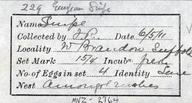 229 European Snipe
Name Snipe
Collected by J.P. Date 6/5/11
Locality W Brandon Suffolk
Set Mark 15/4 Incub. fresh
No of Eggs in set 4 Identity Sure
Nest Amongst rushes
MVZ - 2764